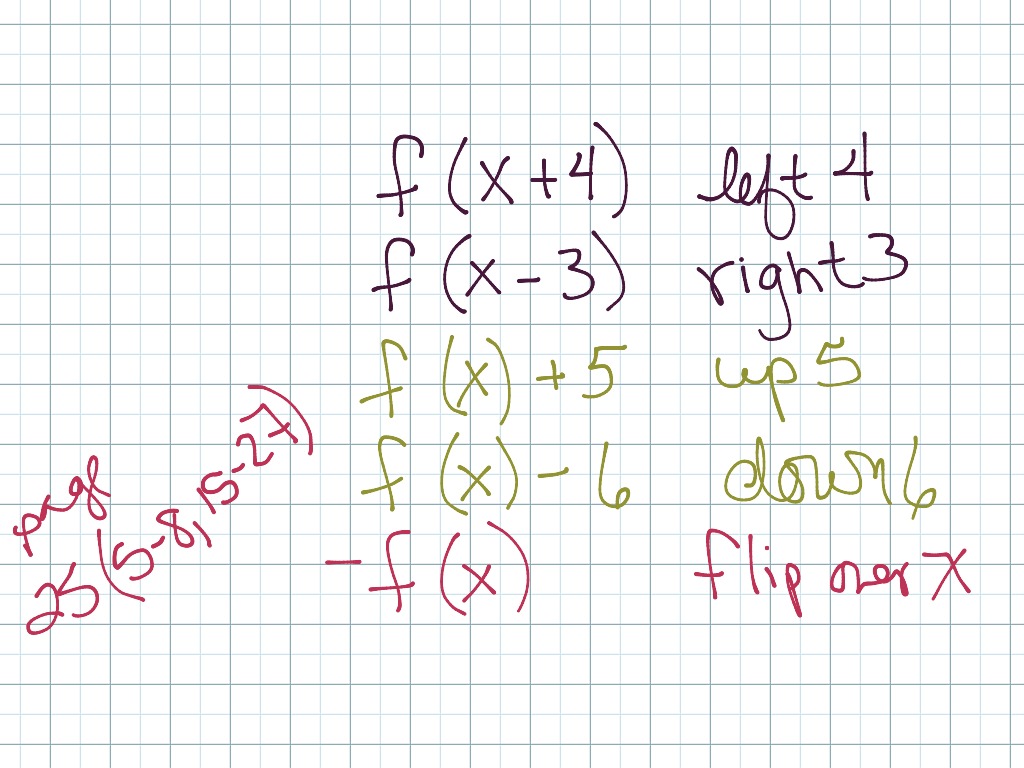 f(x+4) left 4
f(x-3) right 3
f(x)+5 up 5
f(x)-6 down 6
-f(x) flip over x
25 (5-8, 15-27)